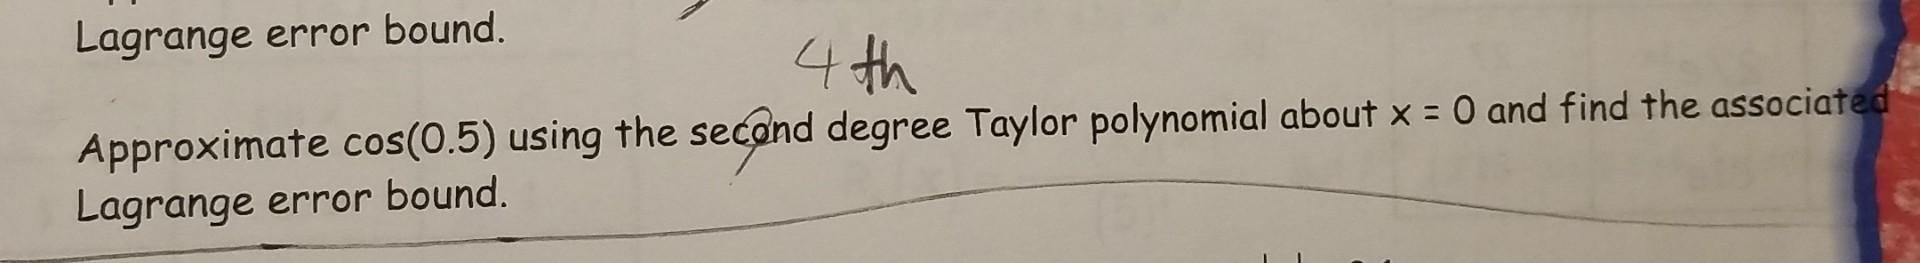 Lagrange error bound.
4th
Approximate cos(0.5) using the second degree Taylor polynomial about x = 0 and find the associated
Lagrange error bound.